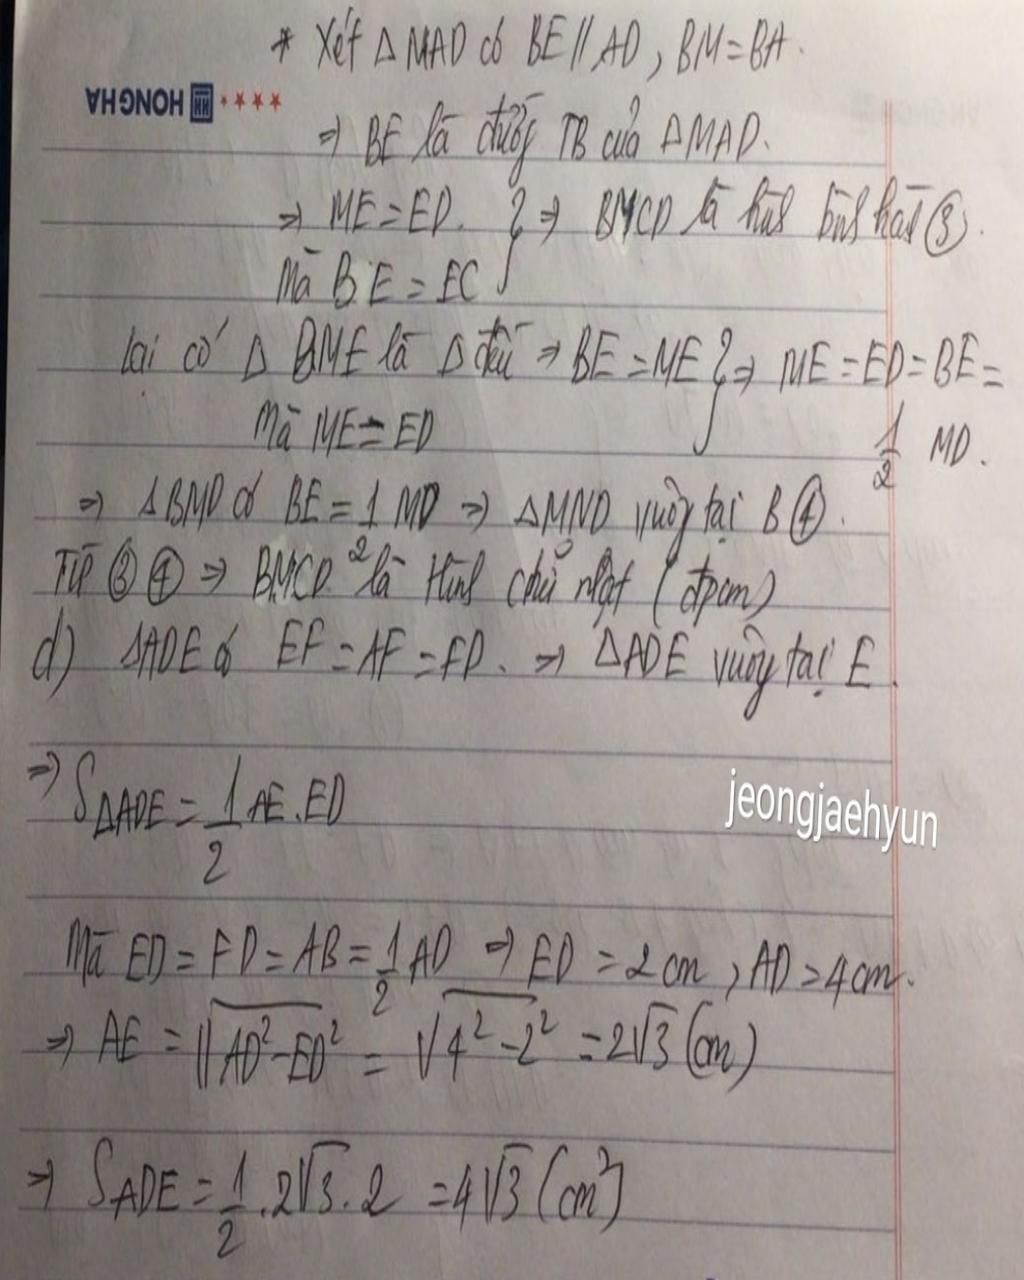 * Xét Δ MAD có BE // AD, BM = BA.
HONG HA
⇒ BE là đường TB của ΔMAD.
⇒ ME = ED. } ⇒ BMCD là hình bình hành ③.
Mà BE = EC
Lại có Δ BME là Δ đều ⇒ BE = ME } ⇒ ME = ED = BE =
Mà ME = ED
1/2 MD.
⇒ ΔBMD có BE = 1/2 MD ⇒ ΔMND vuông tại B ④.
Từ ③ ④ ⇒ BMCD là Hình chữ nhật (đpcm)
d) ΔADE có EF = AF = FD. ⇒ ΔADE vuông tại E.
⇒ SΔADE = 1/2 AE.ED
jeongjaehyun
Mà ED = FD = AB = 1/2 AD ⇒ ED = 2 cm, AD = 4 cm.
⇒ AE = √AD² - ED² = √4² - 2² = 2√3 (cm)
⇒ SADE = 1/2 . 2√3 . 2 = 4√3 (cm²)